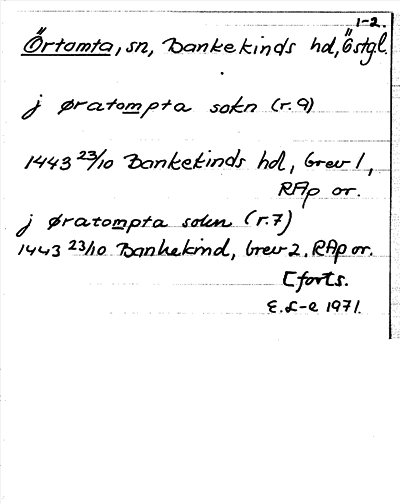 1-2.
Örtomta, sn, Bankekinds hd, Östgl.
j øratompta sokn (r. 9)
1443 23/10 Bankekinds hd, brev 1,
RAp or.
j øratompta sokn (r. 7)
1443 23/10 Bankekind, brev 2. RAp or.
[forts.
E. L-e 1971.